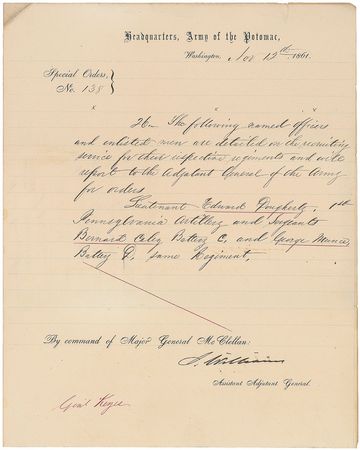 Headquarters, Army of the Potomac,
Washington, Nov 12th 1861.
Special Orders,
No. 138
26. The following named officers
and enlisted men are detailed on the recruiting
service for their respective regiments and will
report to the Adjutant General of the Army
for orders.
Lieutenant Edward Dougherty, 1st
Pennsylvania Artillery and Sergeants
Bernard Coley Battery C. and George Munce
Battery D, same Regiment.
By command of Major General McClellan:
S. Williams
Assistant Adjutant General.
Genl Keyes